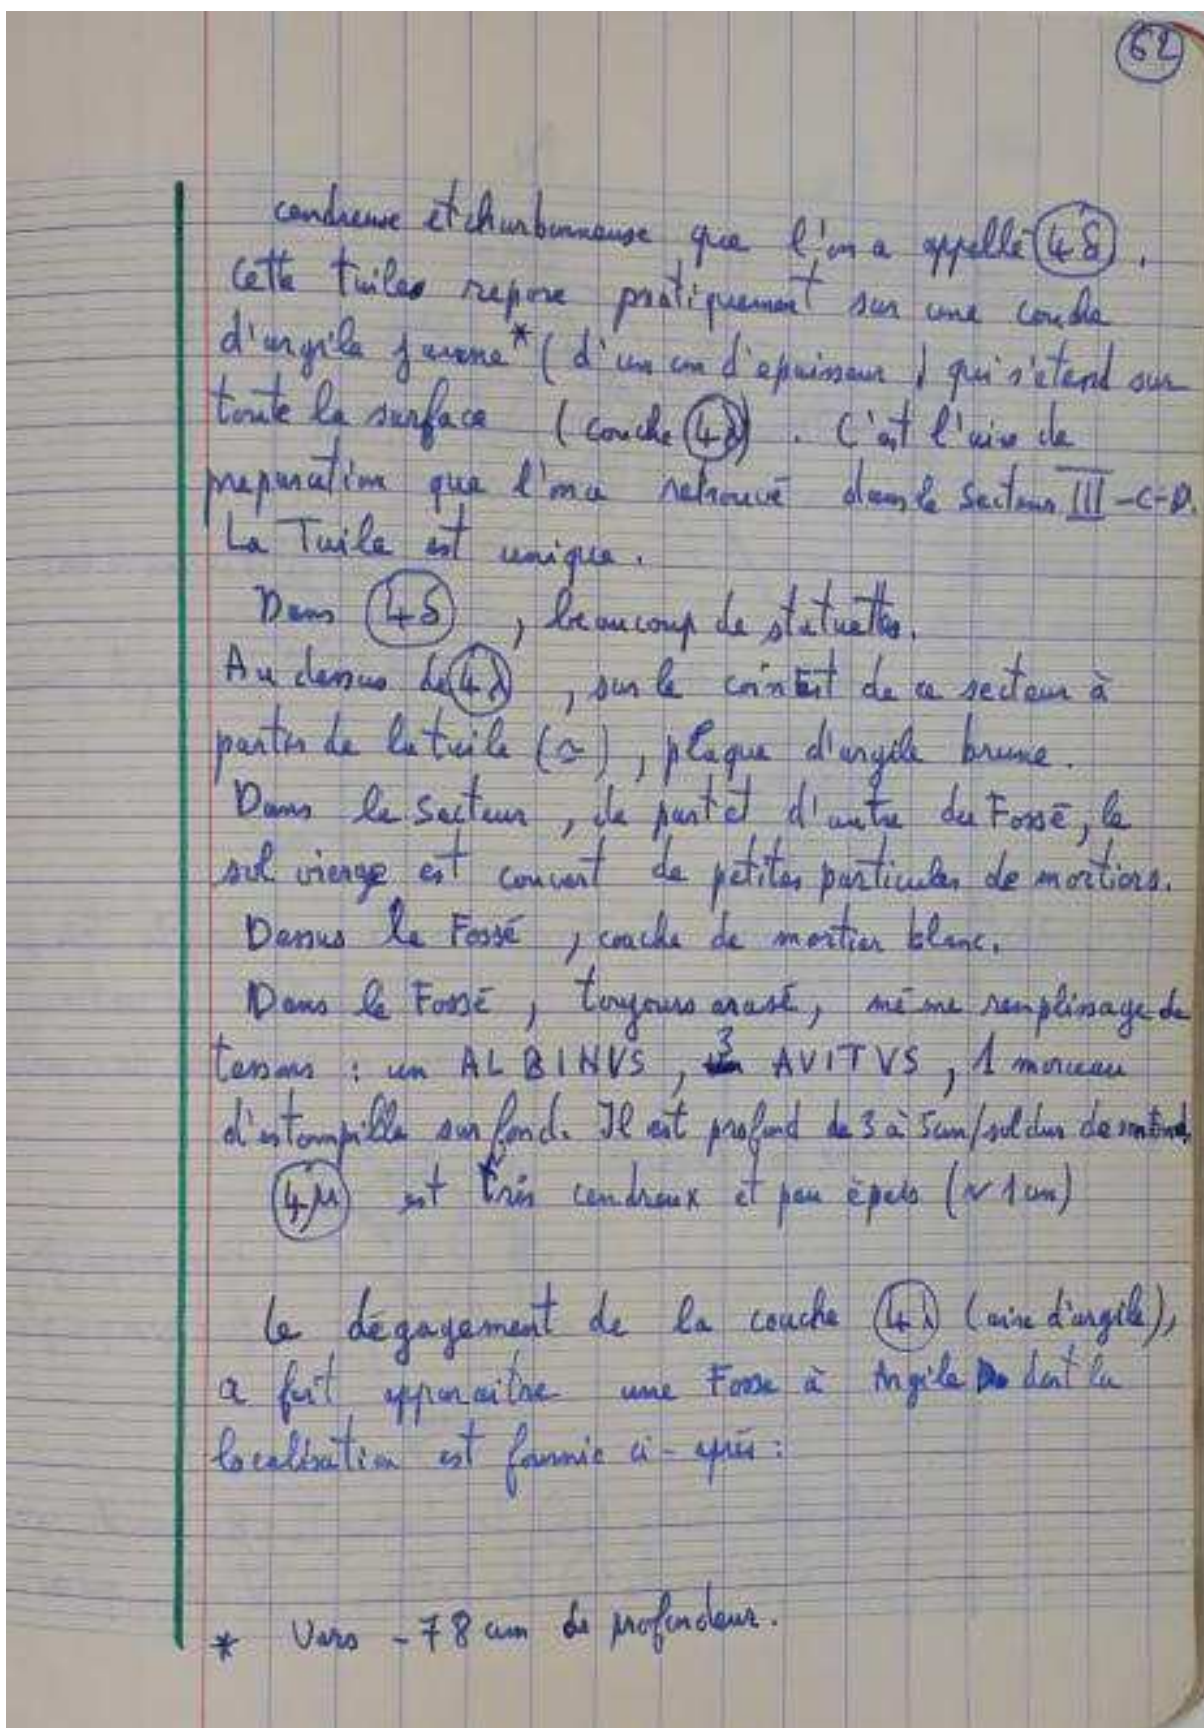 62
cendreuse et charbonneuse que l'on a appellé 4δ.
Cette tuile repose pratiquement sur une couche
d'argile jaune* (d'un cm d'épaisseur) qui s'étend sur
toute la surface (couche 4λ). C'est l'aire de
préparation que l'on a retrouvé dans le secteur III-C-D.
La Tuile est unique.
Dans 4δ, beaucoup de statuettes.
Au dessus de 4λ, sur le coin Est de ce secteur à
partir de la tuile (≃), plaque d'argile brune.
Dans le Secteur, de part et d'autre du Fossé, le
sol vierge est couvert de petites particules de mortiers.
Dessus le Fossé, couche de mortier blanc.
Dans le Fossé, toujours arasé, même remplissage de
tessons : un ALBINVS, 3 AVITVS, 1 morceau
d'estampille sur fond. Il est profond de 3 à 5cm/sol dur
4μ est très cendreux et peu épais (~ 1 cm)
Le dégagement de la couche 4λ (aire d'argile),
a fait apparaitre une Fosse à Argile dont la
localisation est fournie ci-après :
* Vers -78 cm de profondeur.